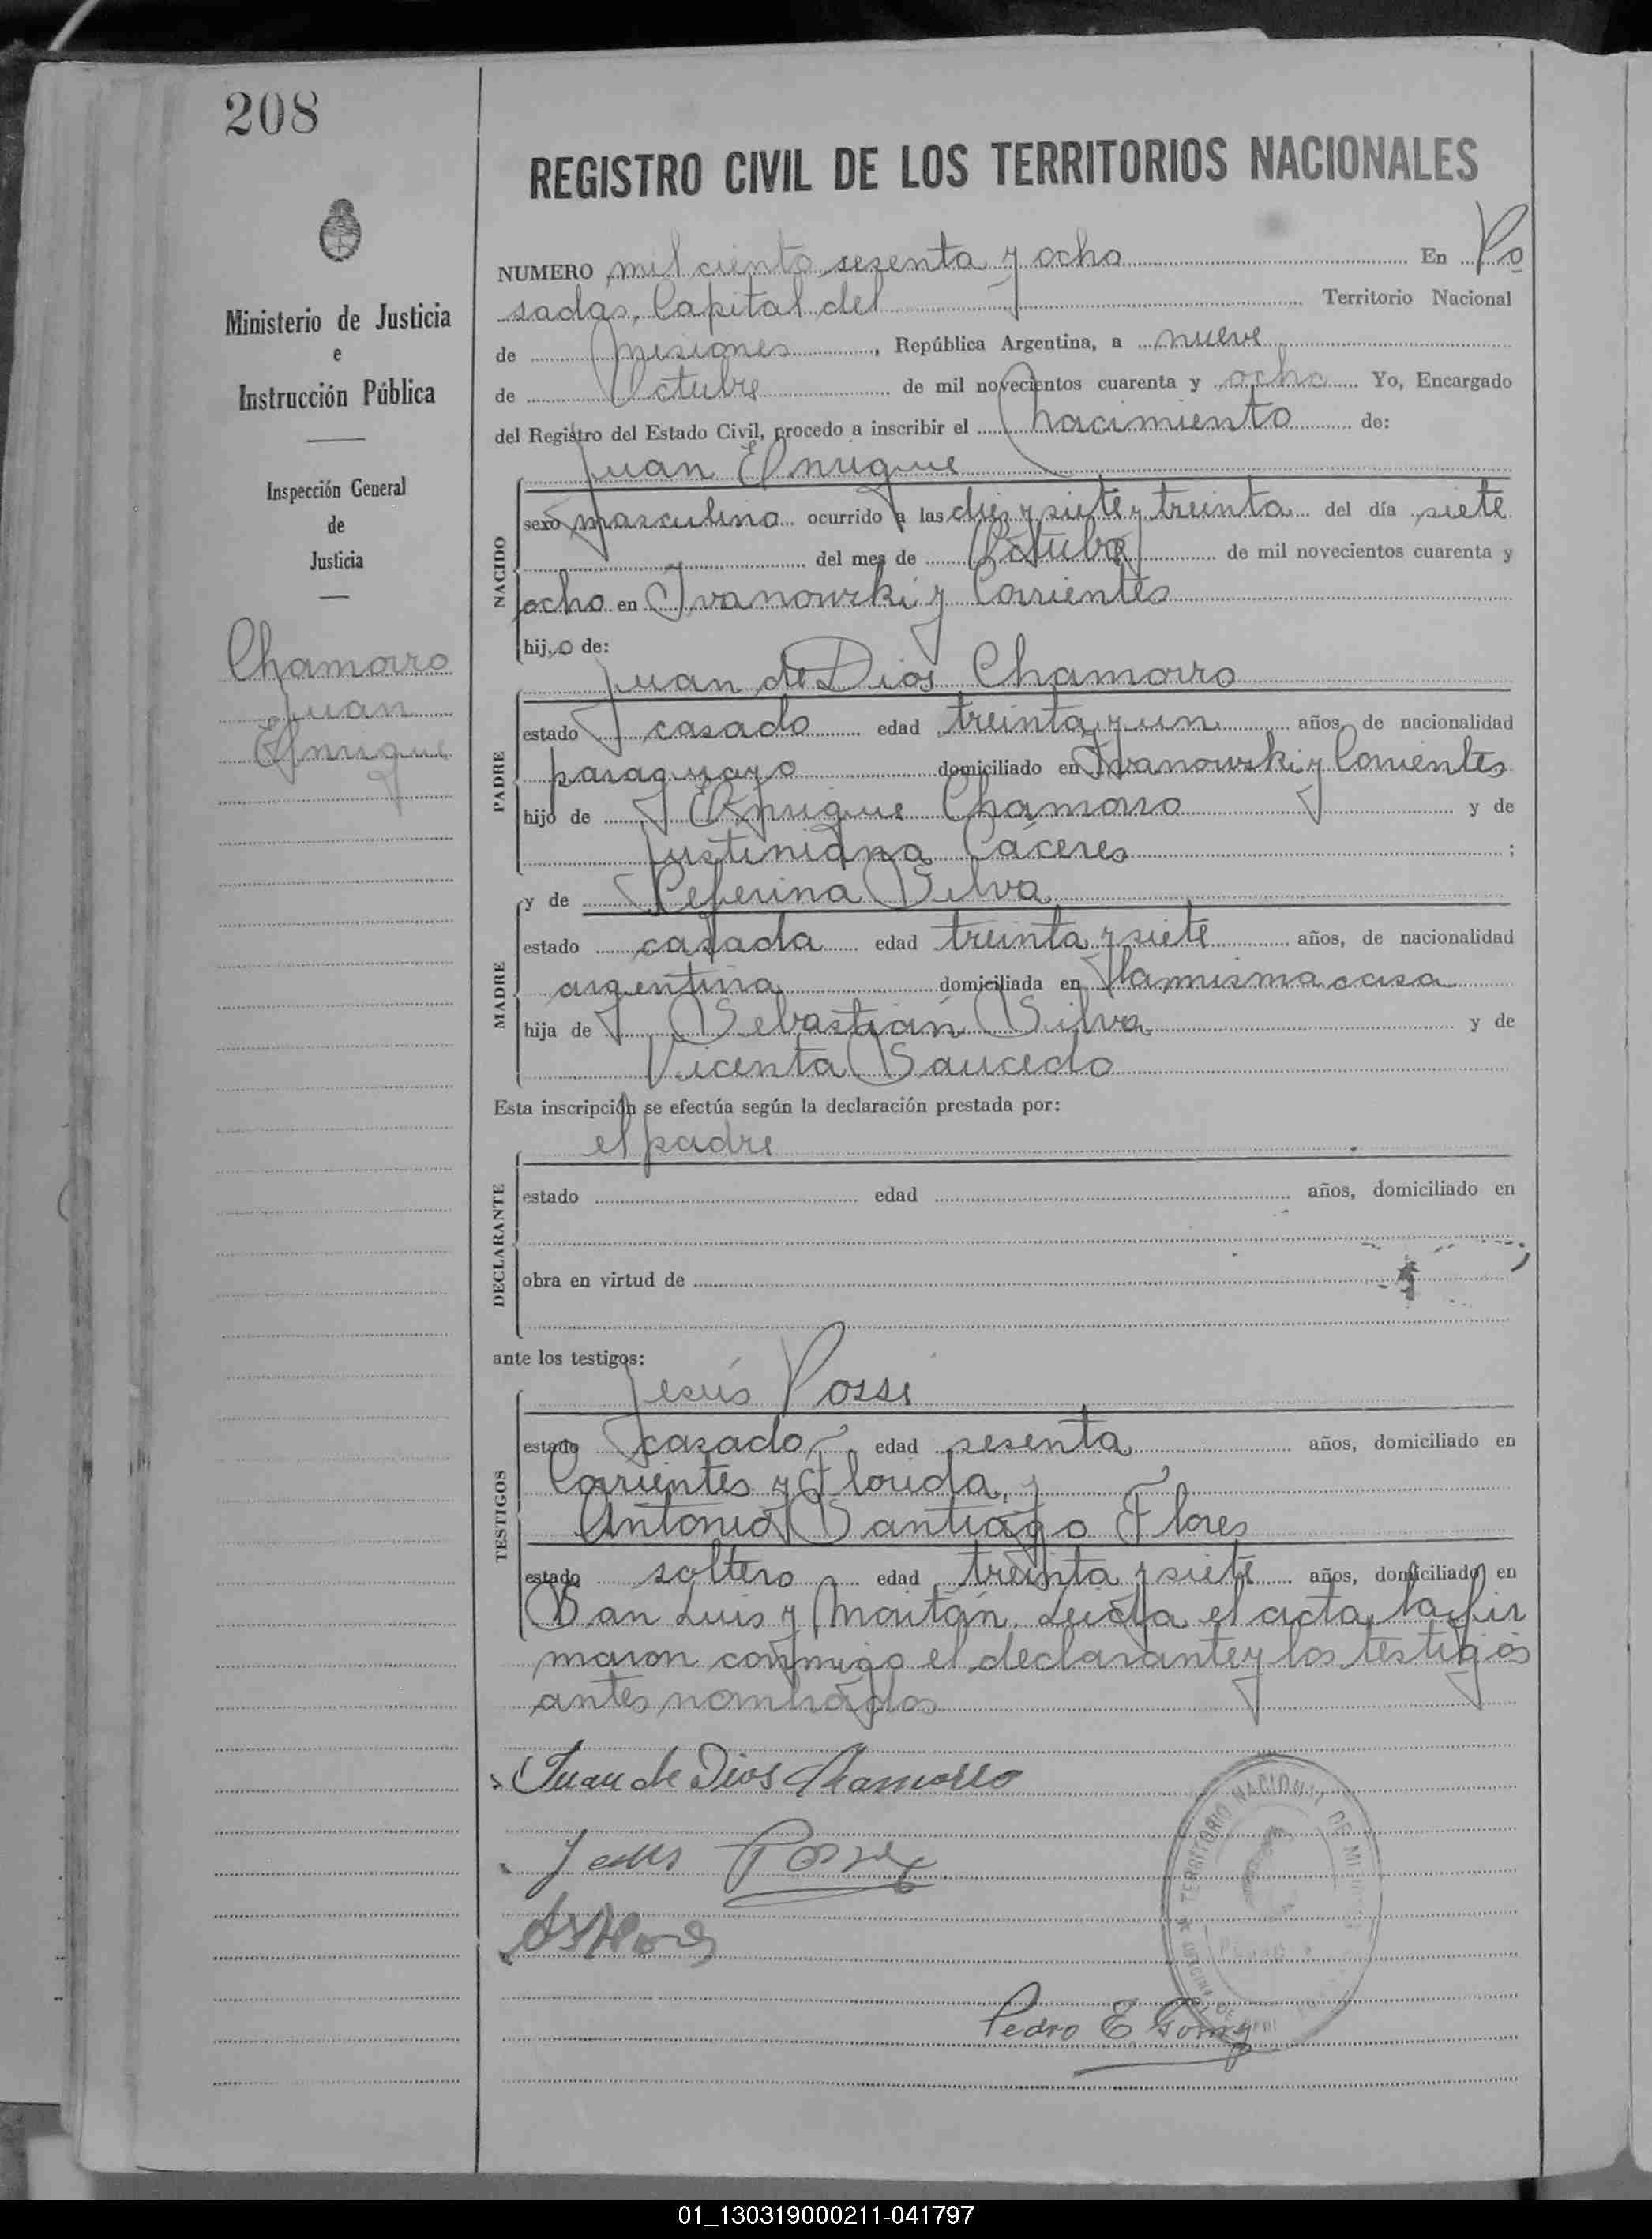 208
REGISTRO CIVIL DE LOS TERRITORIOS NACIONALES
Ministerio de Justicia
e
Instrucción Pública
Inspección General
de
Justicia
Chamorro
Juan
Enrique
NUMERO mil ciento sesenta y ocho En Po
sadas, Capital del Territorio Nacional
de Misiones, República Argentina, a nueve
de Octubre de mil novecientos cuarenta y ocho Yo, Encargado
del Registro del Estado Civil, procedo a inscribir el nacimiento de:
Juan Enrique
NACIDO
sexo masculino ocurrido a las diez y siete y treinta del día siete
del mes de Octubre de mil novecientos cuarenta y
ocho en Ivanowski y Corrientes
hijo de:
Juan de Dios Chamorro
PADRE
estado casado edad treinta y un años, de nacionalidad
paraguayo domiciliado en Ivanowski y Corrientes
hijo de Enrique Chamorro y de
Justiniana Cáceres ;
y de Ceferina Silva
MADRE
estado casada edad treinta y siete años, de nacionalidad
argentina domiciliada en la misma casa
hija de Sebastián Silva y de
Vicenta Saucedo
Esta inscripción se efectúa según la declaración prestada por:
el padre
DECLARANTE
estado edad años, domiciliado en
obra en virtud de
ante los testigos:
Jesús Possi
TESTIGOS
estado casado edad sesenta años, domiciliado en
Corrientes y Florida, y
Antonio Santiago Flores
estado soltero edad treinta y siete años, domiciliado en
San Luis y Maitán. Leída el acta, la fir
maron conmigo el declarante y los testigos
antes nombrados
Juan de Dios Chamorro
Jesus
TERRITORIO NACIONAL DE MI
Pedro E Gomez
01_130319000211-041797